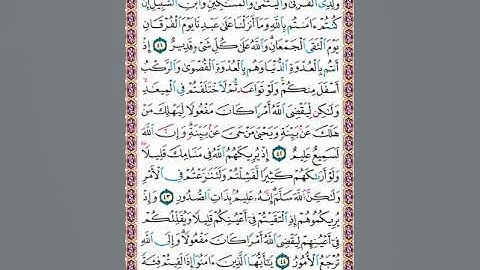 وَلِذِي الْقُرْبَىٰ وَالْيَتَامَىٰ وَالْمَسَاكِينِ وَابْنِ السَّبِيلِ إِن
كُنتُمْ ءَامَنتُم بِاللَّهِ وَمَا أَنزَلْنَا عَلَىٰ عَبْدِنَا يَوْمَ الْفُرْقَانِ
يَوْمَ الْتَقَى الْجَمْعَانِ وَاللَّهُ عَلَىٰ كُلِّ شَيْءٍ قَدِيرٌ ٤١ إِذْ
أَنتُم بِالْعُدْوَةِ الدُّنْيَا وَهُم بِالْعُدْوَةِ الْقُصْوَىٰ وَالرَّكْبُ
أَسْفَلَ مِنكُمْ وَلَوْ تَوَاعَدتُّمْ لَاخْتَلَفْتُمْ فِي الْمِيعَادِ
وَلَٰكِن لِّيَقْضِيَ اللَّهُ أَمْرًا كَانَ مَفْعُولًا لِّيَهْلِكَ مَنْ
هَلَكَ عَن بَيِّنَةٍ وَيَحْيَىٰ مَنْ حَيَّ عَن بَيِّنَةٍ وَإِنَّ اللَّهَ
لَسَمِيعٌ عَلِيمٌ ٤٢ إِذْ يُرِيكَهُمُ اللَّهُ فِي مَنَامِكَ قَلِيلًا
وَلَوْ أَرَاكَهُمْ كَثِيرًا لَّفَشِلْتُمْ وَلَتَنَازَعْتُمْ فِي الْأَمْرِ
وَلَٰكِنَّ اللَّهَ سَلَّمَ إِنَّهُ عَلِيمٌ بِذَاتِ الصُّدُورِ ٤٣ وَإِذْ
يُرِيكُمُوهُمْ إِذِ الْتَقَيْتُمْ فِي أَعْيُنِكُمْ قَلِيلًا وَيُقَلِّلُكُمْ
فِي أَعْيُنِهِمْ لِيَقْضِيَ اللَّهُ أَمْرًا كَانَ مَفْعُولًا وَإِلَى اللَّهِ
تُرْجَعُ الْأُمُورُ ٤٤ يَا أَيُّهَا الَّذِينَ ءَامَنُوا إِذَا لَقِيتُمْ فِئَةً